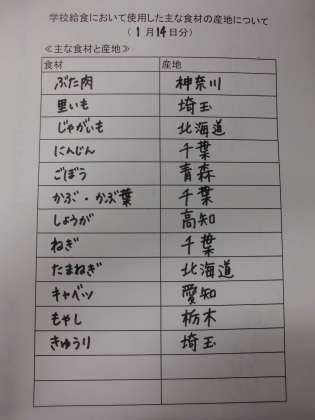 学校給食において使用した主な食材の産地について
(1月14日分)
≪主な食材と産地≫
食材 産地
ぶた肉 神奈川
里いも 埼玉
じゃがいも 北海道
にんじん 千葉
ごぼう 青森
かぶ・かぶ葉 千葉
しょうが 高知
ねぎ 千葉
たまねぎ 北海道
キャベツ 愛知
もやし 栃木
きゅうり 埼玉